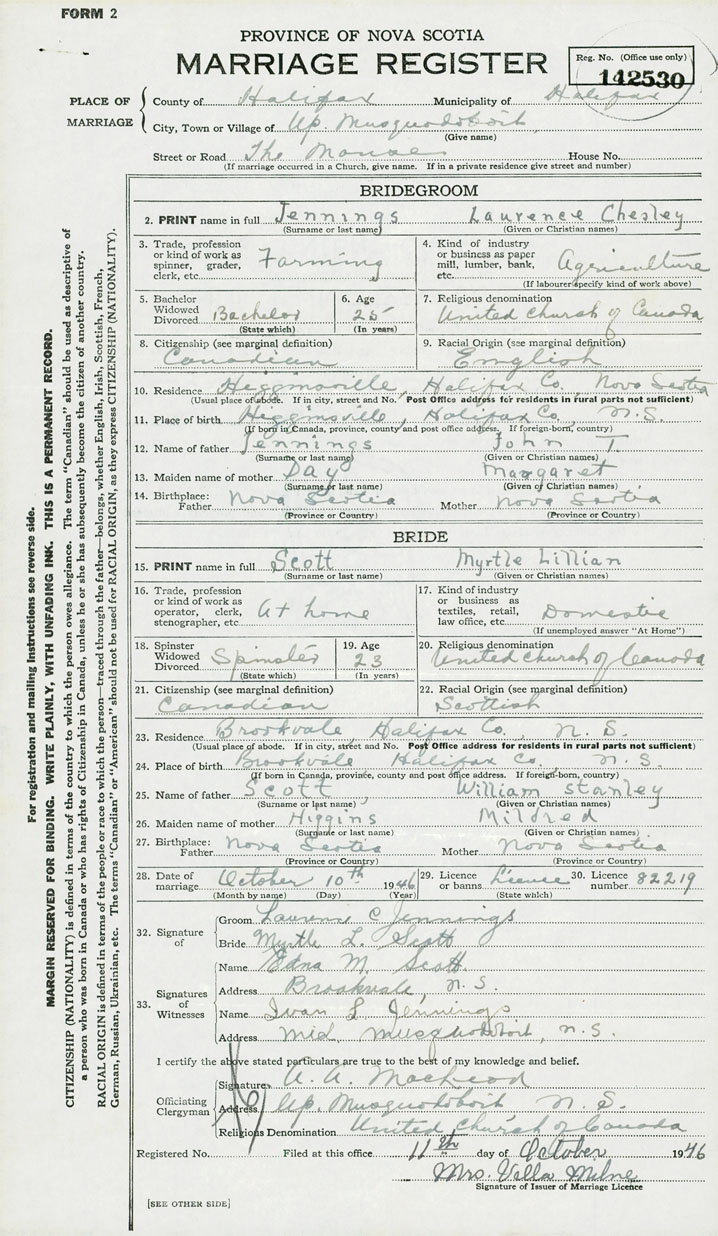 FORM 2
PROVINCE OF NOVA SCOTIA
MARRIAGE REGISTER
Reg. No. (Office use only)
142530
PLACE OF MARRIAGE
County of Halifax Municipality of Halifax
City, Town or Village of Up. Musquodoboit
(Give name)
Street or Road The Manse House No.
(If marriage occurred in a Church, give name. If in a private residence give street and number)
BRIDEGROOM
2. PRINT name in full Jennings Laurence Chesley
(Surname or last name) (Given or Christian names)
3. Trade, profession or kind of work as spinner, grader, clerk, etc. Farming
4. Kind of industry or business as paper mill, lumber, bank, etc. Agriculture
(If labourer specify kind of work above)
5. Bachelor Widowed Divorced Bachelor
(State which)
6. Age 25
(In years)
7. Religious denomination
United church of Canada
8. Citizenship (see marginal definition)
Canadian
9. Racial Origin (see marginal definition)
English
10. Residence Higginsville, Halifax Co. Nova Scotia
(Usual place of abode. If in city, street and No. Post Office address for residents in rural parts not sufficient)
11. Place of birth Higginsville, Halifax Co, N.S.
(If born in Canada, province, county and post office address. If foreign-born, country)
12. Name of father Jennings John T.
(Surname or last name) (Given or Christian names)
13. Maiden name of mother Day Margaret
(Surname or last name) (Given or Christian names)
14. Birthplace: Father Nova Scotia Mother Nova Scotia
(Province or Country) (Province or Country)
BRIDE
15. PRINT name in full Scott Myrtle Lillian
(Surname or last name) (Given or Christian names)
16. Trade, profession or kind of work as operator, clerk, stenographer, etc. At home
17. Kind of industry or business as textiles, retail, law office, etc. Domestic
(If unemployed answer "At Home")
18. Spinster Widowed Divorced Spinster
(State which)
19. Age 23
(In years)
20. Religious denomination
United church of Canada
21. Citizenship (see marginal definition)
Canadian
22. Racial Origin (see marginal definition)
Scottish
23. Residence Brookvale, Halifax Co., N.S.
(Usual place of abode. If in city, street and No. Post Office address for residents in rural parts not sufficient)
24. Place of birth Brookvale Halifax Co., N.S.
(If born in Canada, province, county and post office address. If foreign-born, country)
25. Name of father Scott, William Stanley
(Surname or last name) (Given or Christian names)
26. Maiden name of mother Higgins Mildred
(Surname or last name) (Given or Christian names)
27. Birthplace: Father Nova Scotia Mother Nova Scotia
(Province or Country) (Province or Country)
28. Date of marriage October 10th 1946
(Month by name) (Day) (Year)
29. Licence or banns Licence
(State which)
30. Licence number 82219
32. Signature of
Groom Laurence C Jennings
Bride Myrtle L. Scott
33. Signatures of Witnesses
Name Edna M. Scott.
Address Brookvale, N.S.
Name Ivan L Jennings
Address Mid. Musquodoboit, N.S.
I certify the above stated particulars are true to the best of my knowledge and belief.
Officiating Clergyman
Signature A. A. MacLeod
Address Up. Musquodoboit N.S.
Religious Denomination United Church of Canada
Registered No. Filed at this office 11th day of October 1946
Mrs. Villa Milne
Signature of Issuer of Marriage Licence
[SEE OTHER SIDE]
For registration and mailing instructions see reverse side.
MARGIN RESERVED FOR BINDING. WRITE PLAINLY, WITH UNFADING INK. THIS IS A PERMANENT RECORD.
CITIZENSHIP (NATIONALITY) is defined in terms of the country to which the person owes allegiance. The term "Canadian" should be used as descriptive of
a person who was born in Canada or who has rights of Citizenship in Canada, unless he or she has subsequently become the citizen of another country.
RACIAL ORIGIN is defined in terms of the people or race to which the person—traced through the father—belongs, whether English, Irish, Scottish, French,
German, Russian, Ukrainian, etc. The terms "Canadian" or "American" should not be used for RACIAL ORIGIN, as they express CITIZENSHIP (NATIONALITY).